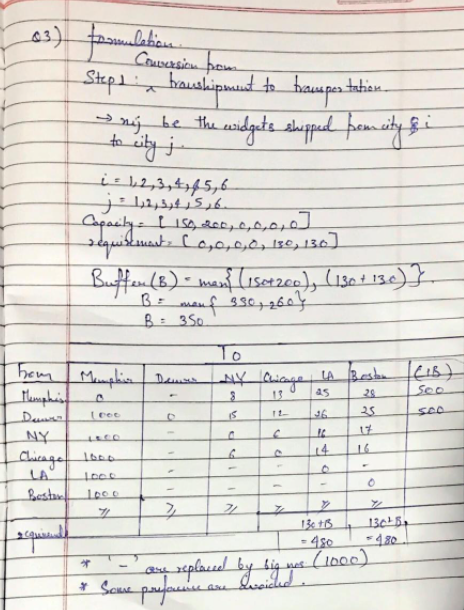 Q3) formulation.
Conversion from
Step 1 : ^ transhipment to transportation.
→ xij be the widgets shipped from city i
to city j.
i = 1,2,3,4,5,6
j = 1,2,3,4,5,6.
Capacity = [ 150, 200, 0, 0, 0, 0]
requirement = [ 0,0,0,0, 130, 130]
Buffer (B) = max{ (150+200), (130+130) }.
B = max { 350, 260}
B = 350
To
from Memphis Denver NY Chicago LA Boston (+B)
Memphis 0 - 8 13 25 28 500
Denver 1000 0 15 12 26 25 500
NY 1000 - 0 6 16 17
Chicago 1000 - 6 0 14 16
LA 1000 - - - 0 -
Boston 1000 - - - - 0
requirement 130+B 130+B
= 480 = 480
* '-' are replaced by big nos (1000)
* Some are avoided.